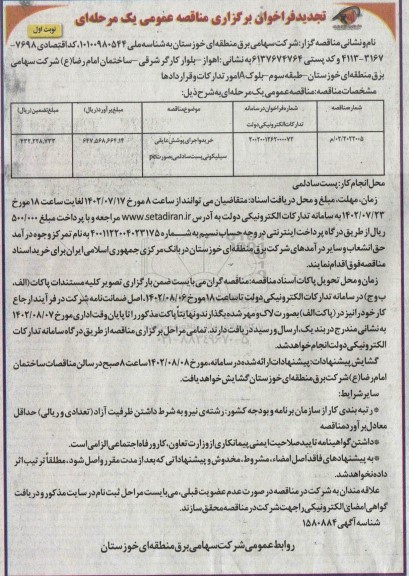 تجدیدفراخوان برگزاری مناقصه عمومی یک مرحله‌ای
نوبت اول
نام و نشانی مناقصه گزار: شرکت سهامی برق منطقه‌ای خوزستان به شناسه ملی ۱۰۱۰۰۹۸۰۵۴۴، کداقتصادی ۷۶۹۸-
۳۱۶۷-۴۱۱۳ و کدپستی ۶۱۳۷۶۴۴۷۶۴ به نشانی: اهواز - بلوار کارگر شرقی - ساختمان امام رضا(ع) شرکت سهامی
برق منطقه‌ای خوزستان - طبقه سوم - بلوک A امور تدارکات و قراردادها
مشخصات مناقصه: مناقصه عمومی یک مرحله‌ای به شرح ذیل:
شماره مناقصه
شماره فراخوان در سامانه تدارکات الکترونیکی دولت
موضوع مناقصه
مبلغ برآورد (ریال)
مبلغ تضمین (ریال)
۰۲/م/۲۰۲۲۰۰۵
۲۰۰۲۰۰۱۴۶۲۰۰۰۰۷۲
خرید و اجرای پوشش عایقی سیلیکونی پست سادلمی بصورت pc
۶۴۷,۵۶۸,۶۶۴,۱۴
۴۳۲,۲۲۸,۷۳۳
محل انجام کار: پست سادلمی
زمان، مهلت، مبلغ و محل دریافت اسناد: متقاضیان می توانند از ساعت ۸ مورخ ۱۴۰۲/۰۷/۱۷ لغایت ساعت ۱۸ مورخ
۱۴۰۲/۰۷/۲۳ به سامانه تدارکات الکترونیکی دولت به آدرس www.setadiran.ir مراجعه و با پرداخت مبلغ ۵۰۰/۰۰۰
ریال از طریق درگاه پرداخت اینترنتی در وجه حساب نسیم به شماره ۴۰۰۱۱۲۲۰۰۴۰۲۳۱۷۵ به نام تمرکز وجوه درآمد
حق انشعاب و سایر درآمدهای شرکت برق منطقه‌ای خوزستان در بانک مرکزی جمهوری اسلامی ایران برای خرید اسناد
مناقصه فوق اقدام نمایند.
زمان و محل تحویل پاکات اسناد مناقصه: مناقصه گران می بایست ضمن بارگزاری تصویر کلیه مستندات پاکات (الف،
ب و ج) در سامانه تدارکات الکترونیکی دولت تا ساعت ۱۸ مورخ ۱۴۰۲/۰۸/۰۶، اصل ضمانت نامه شرکت در فرآیند ارجاع
کار خود را نیز در (پاکت الف) بصورت لاک و مهر شده بگذارند و نهایتاً پاکت مذکور را تا پایان وقت اداری مورخ ۱۴۰۲/۰۸/۰۷
به نشانی مندرج در بند یک، ارسال و رسید دریافت دارند. تمامی مراحل برگزاری مناقصه از طریق درگاه سامانه تدارکات
الکترونیکی دولت انجام خواهد شد.
گشایش پیشنهادات: پیشنهادات ارائه شده در سامانه، مورخ ۱۴۰۲/۰۸/۰۸ ساعت ۸ صبح در سالن مناقصات ساختمان
امام رضا(ع) شرکت برق منطقه‌ای خوزستان گشایش خواهد یافت.
سایر شرایط:
* رتبه بندی کار از سازمان برنامه و بودجه کشور: رشته‌ی نیرو به شرط داشتن ظرفیت آزاد (تعدادی و ریالی) حداقل
معادل برآورد مناقصه
* داشتن گواهینامه تایید صلاحیت ایمنی پیمانکاری از وزارت تعاون، کار و رفاه اجتماعی الزامی است.
* به پیشنهادهای فاقد اصل امضاء، مشروط، مخدوش و پیشنهاداتی که بعد از مدت مقرر واصل شود، مطلقاً ترتیب اثر
داده نخواهد شد.
علاقه مندان به شرکت در مناقصه در صورت عدم عضویت قبلی، می بایست مراحل ثبت نام در سایت مذکور و دریافت
گواهی امضای الکترونیکی را جهت شرکت در مناقصه محقق سازند.
شناسه آگهی ۱۵۸۰۸۸۴
روابط عمومی شرکت سهامی برق منطقه‌ای خوزستان